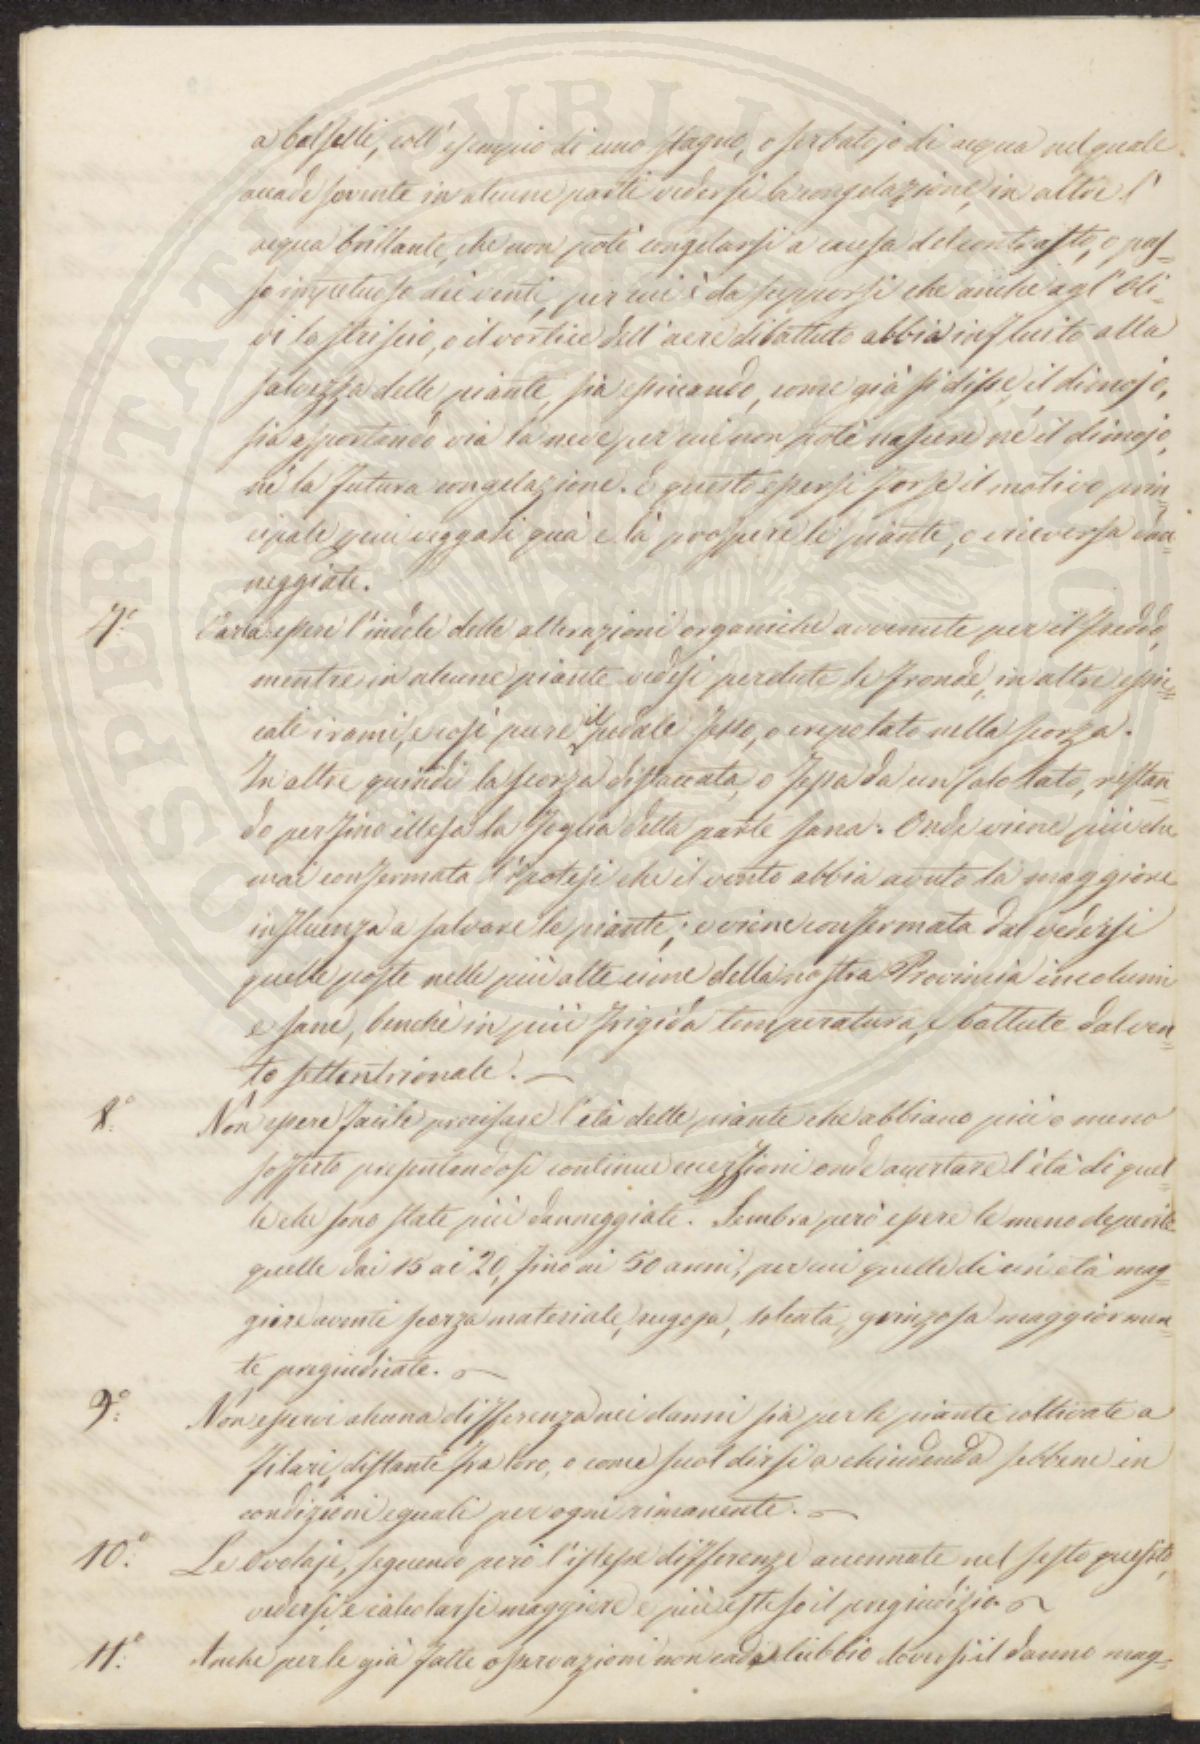 a Colfelli, coll' esempio di uno stagno, o serbatojo di acqua nel quale
accade sovente in alcune parti vedersi la congelazione, in altre l'
acqua brillante, che non potè congelarsi a causa del contrasto, o pas=
so impetuoso dei venti, per cui è da supporsi che anche agl' Oli=
vi lo striscio, o il vortice dell' aere dibattuto abbia influito alla
salvezza delle piante, sia essiccando, come già si disse, il dimojo,
sia asportando via la neve per cui non potè nascere nè il dimojo,
nè la futura congelazione. E questo essersi forse il motivo prin
cipale per cui veggasi quà e là prospere le piante, o viceversa dan=
neggiate.
7.° Varia essere l'indole delle alterazioni organiche avvenute per il freddo,
mentre in alcune piante vedesi perdute le fronde, in altre essic=
cati i rami, e così pure il pedale fesso, o crepolato nella scorza.
In altre quindi la scorza distaccata, o fessa da un solo lato, restan=
do per fino illesa la foglia della parte sana. Onde viene più che
mai confermata l'ipotesi che il vento abbia avuto la maggiore
influenza a salvare le piante; e viene confermata dal vedersi
quelle poste nelle più alte cime della nostra Provincia incolumi
e sane, benchè in più frigida temperatura, e battute dal ven=
to settentrionale.
8.° Non essere facile precisare l'età delle piante che abbiano più o meno
sofferto presentandosi continue eccezzioni onde accertare l'età di quel=
le che sono state più danneggiate. Sembra però essere le meno deperite
quelle dai 15 ai 20, fino ai 50 anni, per cui quelle di un'età mag=
giore aventi scorza materiale, rugosa, solcata, grinzosa maggiormen=
te pregiudicate.
9.° Non esservi alcuna differenza nei danni sia per le piante coltivate a
filari, distante fra loro, o come suol dirsi a chiudenda sebbene in
condizioni eguali per ogni rimanente.
10.° Le Ovolaje, seguendo però l'istesse differenze accennate nel sesto quesito,
vedersi e calcolarsi maggiore e più esteso il pregiudizio.
11.° Anche per le già fatte osservazioni non cade dubbio doversi il danno mag=